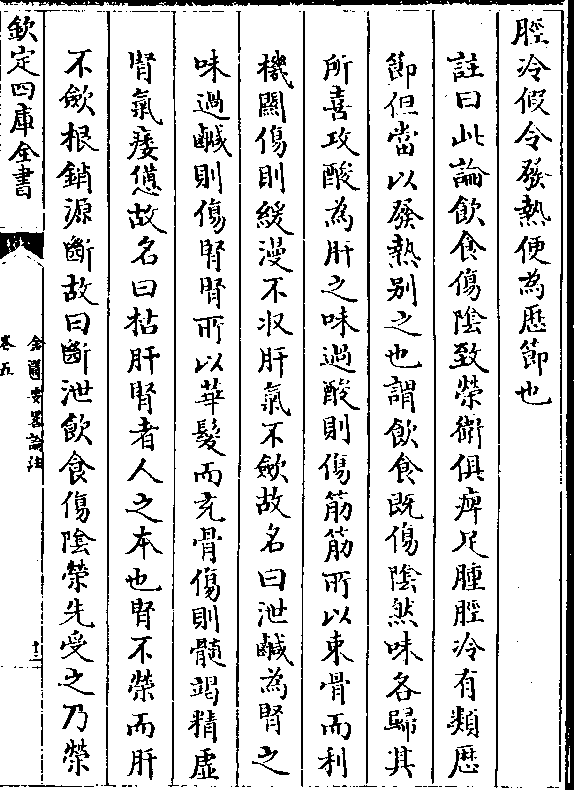 脛冷假令發熱便為歴節也
註曰此論飲食傷陰致榮衛俱痺足腫脛冷有類歴
節但當以發熱别之也謂飲食既傷陰然味各歸其
所喜攻酸為肝之味過酸則傷筋筋所以束骨而利
機關傷則緩漫不収肝氣不斂故名曰泄鹹為腎之
味過鹹則傷腎腎所以華髮而充骨傷則髓竭精虚
腎氣痿憊故名曰枯肝腎者人之本也腎不榮而肝
不斂根銷源斷故曰斷泄飲食傷陰榮先受之乃榮
欽定四庫全書
金匱要畧論注
卷五